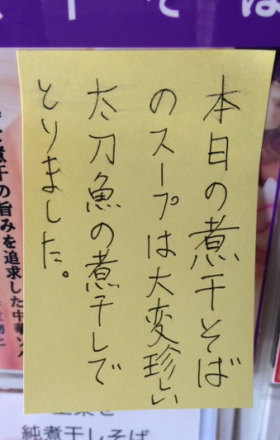 本日の煮干そば
のスープは大変珍しい
太刀魚の煮干しで
とりました。
煮干の旨みを追求した中華ソバ
純煮干しそば